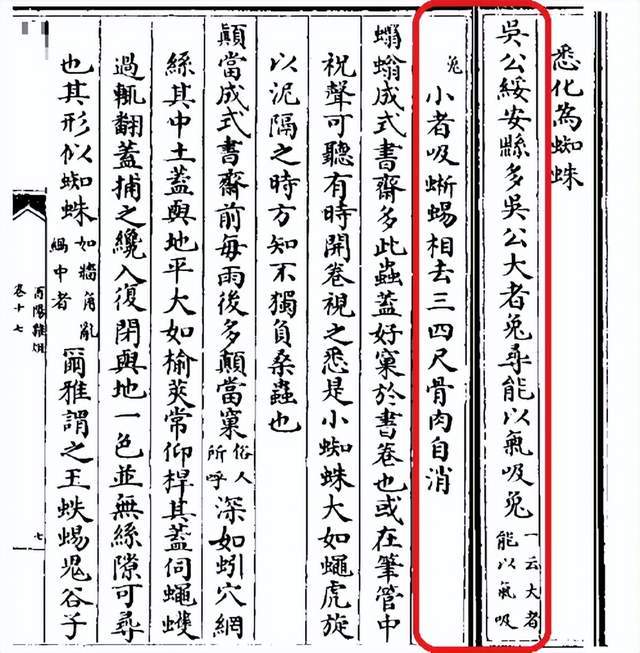 悉化為蜘蛛
吳公綏安縣多吳公大者兔尋能以氣吸兔一云大者能以氣吸
兔小者吸蜥蜴相去三四尺骨肉自消
蠮螉成式書齋多此蟲蓋好窠於書卷也或在筆管中
祝聲可聽有時開卷視之悉是小蜘蛛大如蠅虎旋
以泥隔之時方知不獨負桑蟲也
顛當成式書齋前每雨後多顛當窠俗人所呼深如蚓穴網
絲其中土蓋與地平大如榆莢常仰捍其蓋伺蠅蠖
過輒翻蓋捕之纔入復閉與地一色並無絲隙可尋
也其形似蜘蛛如牆角亂綱中者爾雅謂之王蛈蜴鬼谷子
酉陽雜俎
卷十七
七